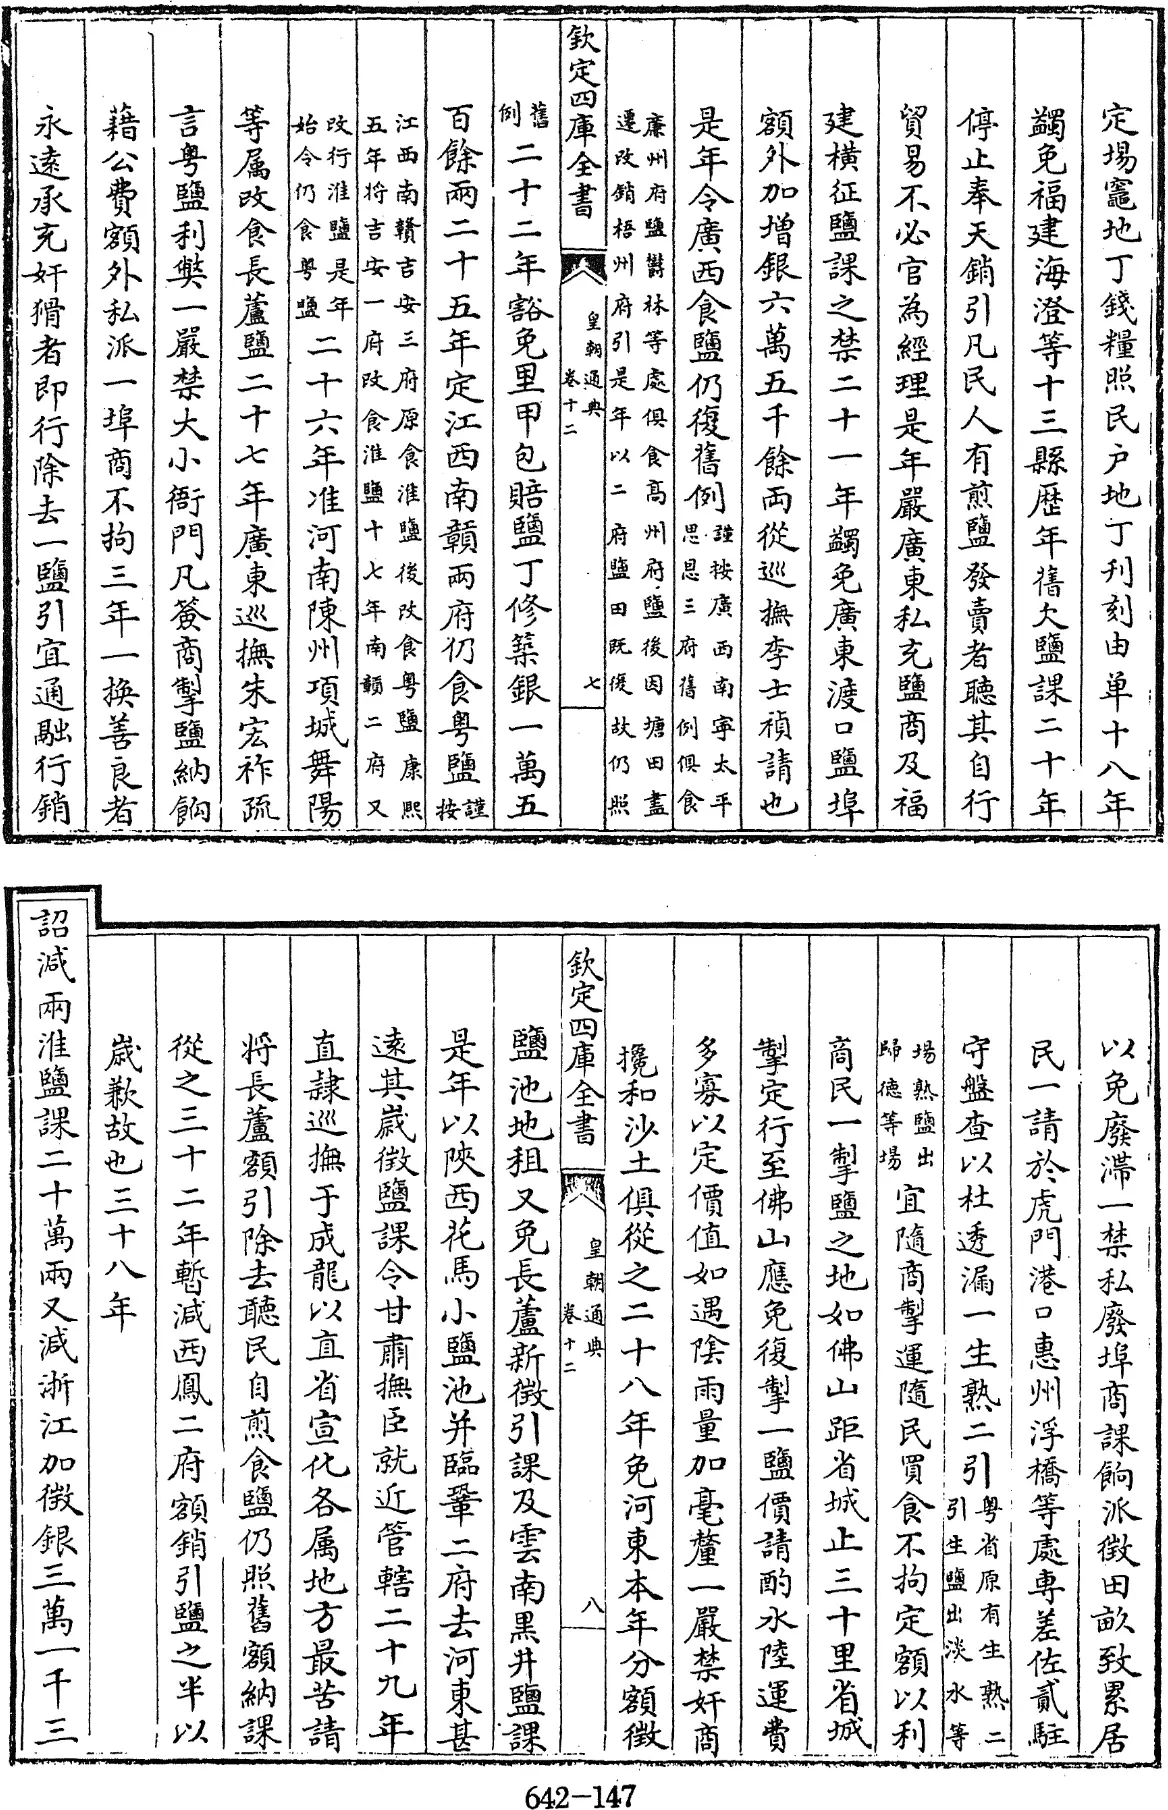 定場竈地丁錢糧照民户地丁刋刻由单十八年
蠲免福建海澄等十三縣歷年舊欠鹽課二十年
停止奉天銷引凡民人有煎鹽發賣者聽其自行
貿易不必官為經理是年嚴廣東私充鹽商及福
建橫征鹽課之禁二十一年蠲免廣東渡口鹽埠
額外加增銀六萬五千餘兩從巡撫李士禎請也
是年令廣西食鹽仍復舊例謹按廣西南寧太平
思恩三府舊例俱食
廉州府鹽欝林等處俱食髙州府鹽後因塘田盡
遷改銷梧州府引是年以二府鹽田既復故仍照
欽定四庫全書
皇朝通典
卷十二
七
舊
例二十二年豁免里甲包賠鹽丁修築銀一萬五
百餘兩二十五年定江西南贛兩府仍食粤鹽謹
按
江西南贛吉安三府原食淮鹽後改食粤鹽康熙
五年将吉安一府改食淮鹽十七年南贛二府又
改行淮鹽是年
始令仍食粤鹽二十六年准河南陳州項城舞陽
等属改食長蘆鹽二十七年廣東巡撫朱宏祚疏
言粤鹽利獘一嚴禁大小衙門凡簽商掣鹽納餉
藉公費額外私派一埠商不拘三年一換善良者
永遠承充奸猾者即行除去一鹽引宜通融行銷
以免廢滯一禁私廢埠商課餉派徴田畝致累居
民一請於虎門港口惠州浮橋等處専差佐貳駐
守盤查以杜透漏一生熟二引粤省原有生熟二
引生鹽出淡水等
場熟鹽出
歸德等場宜隨商掣運隨民買食不拘定額以利
商民一掣鹽之地如佛山距省城止三十里省城
掣定行至佛山應免復掣一鹽價請酌水陸運費
多寡以定價值如遇陰雨量加毫釐一嚴禁奸商
攙和沙土俱從之二十八年免河東本年分額徴
欽定四庫全書
皇朝通典
卷十二
八
鹽池地租又免長蘆新徴引課及雲南黒井鹽課
是年以陜西花馬小鹽池并臨鞏二府去河東甚
遠其嵗徴鹽課令甘肅撫臣就近管轄二十九年
直隷巡撫于成龍以直省宣化各属地方最苦請
将長蘆額引除去聽民自煎食鹽仍照舊額納課
從之三十二年暫減西鳳二府額銷引鹽之半以
嵗歉故也三十八年
詔減兩淮鹽課二十萬兩又減浙江加徴銀三萬一千三
642-147